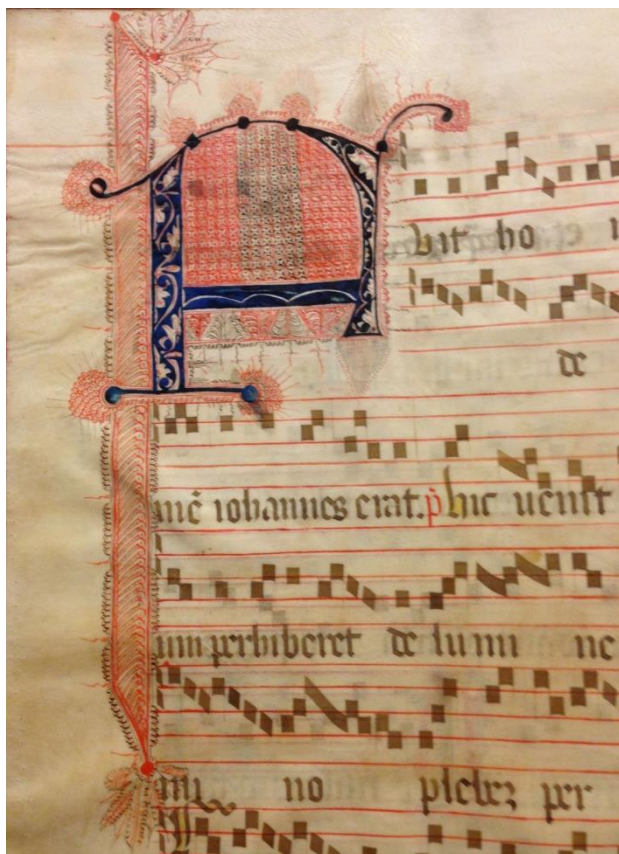 Fuit ho
de
mē iohannes erat. p̄ hic uenit
um perhiberet de lumi ne
mi no plebez per